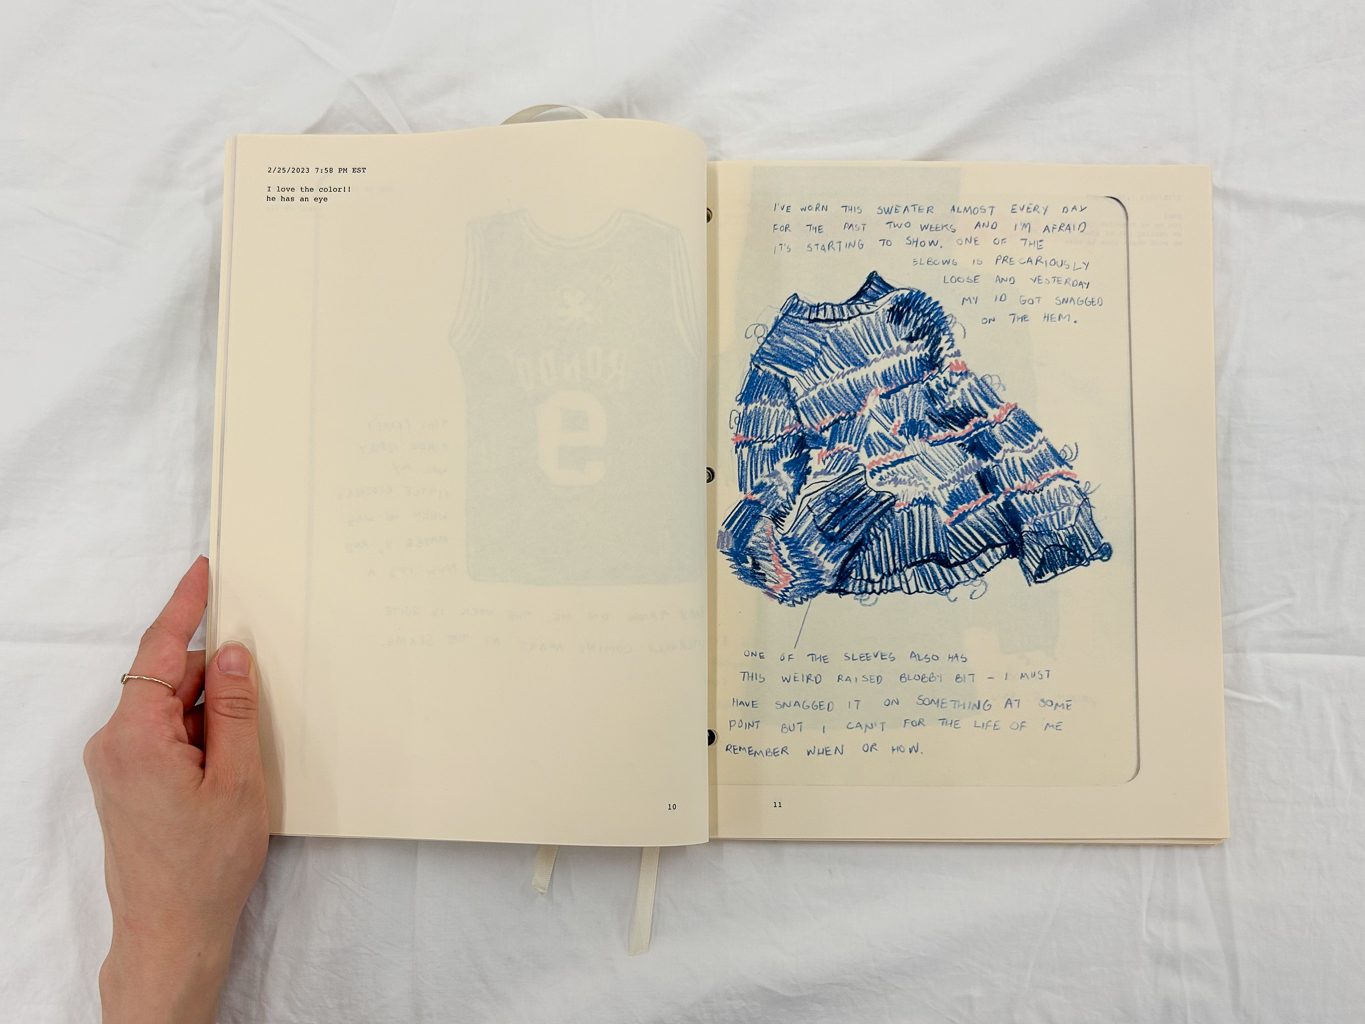 2/25/2023 7:58 PM EST
I love the color!!
he has an eye
10
I'VE WORN THIS SWEATER ALMOST EVERY DAY
FOR THE PAST TWO WEEKS AND I'M AFRAID
IT'S STARTING TO SHOW. ONE OF THE
ELBOWS IS PRECARIOUSLY
LOOSE AND YESTERDAY
MY ID GOT SNAGGED
ON THE HEM.
ONE OF THE SLEEVES ALSO HAS
THIS WEIRD RAISED BLOBBY BIT – I MUST
HAVE SNAGGED IT ON SOMETHING AT SOME
POINT BUT I CAN'T FOR THE LIFE OF ME
REMEMBER WHEN OR HOW.
11
RONDO
9